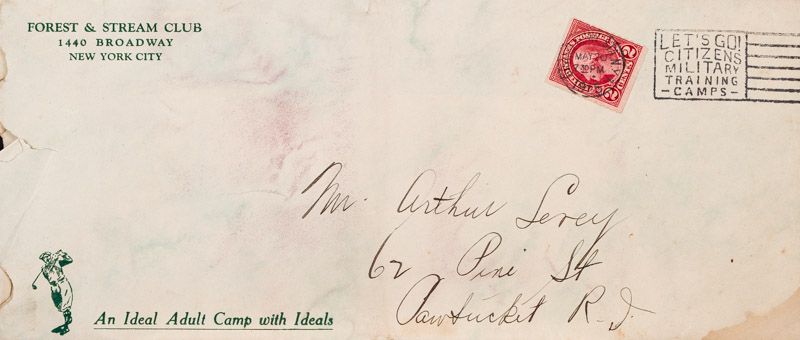 FOREST & STREAM CLUB
1440 BROADWAY
NEW YORK CITY
MAY
7 30 PM
LET'S GO!
CITIZENS
MILITARY
TRAINING
- CAMPS -
Mr. Arthur Levey
62 Pine St
Pawtucket R.I.
An Ideal Adult Camp with Ideals